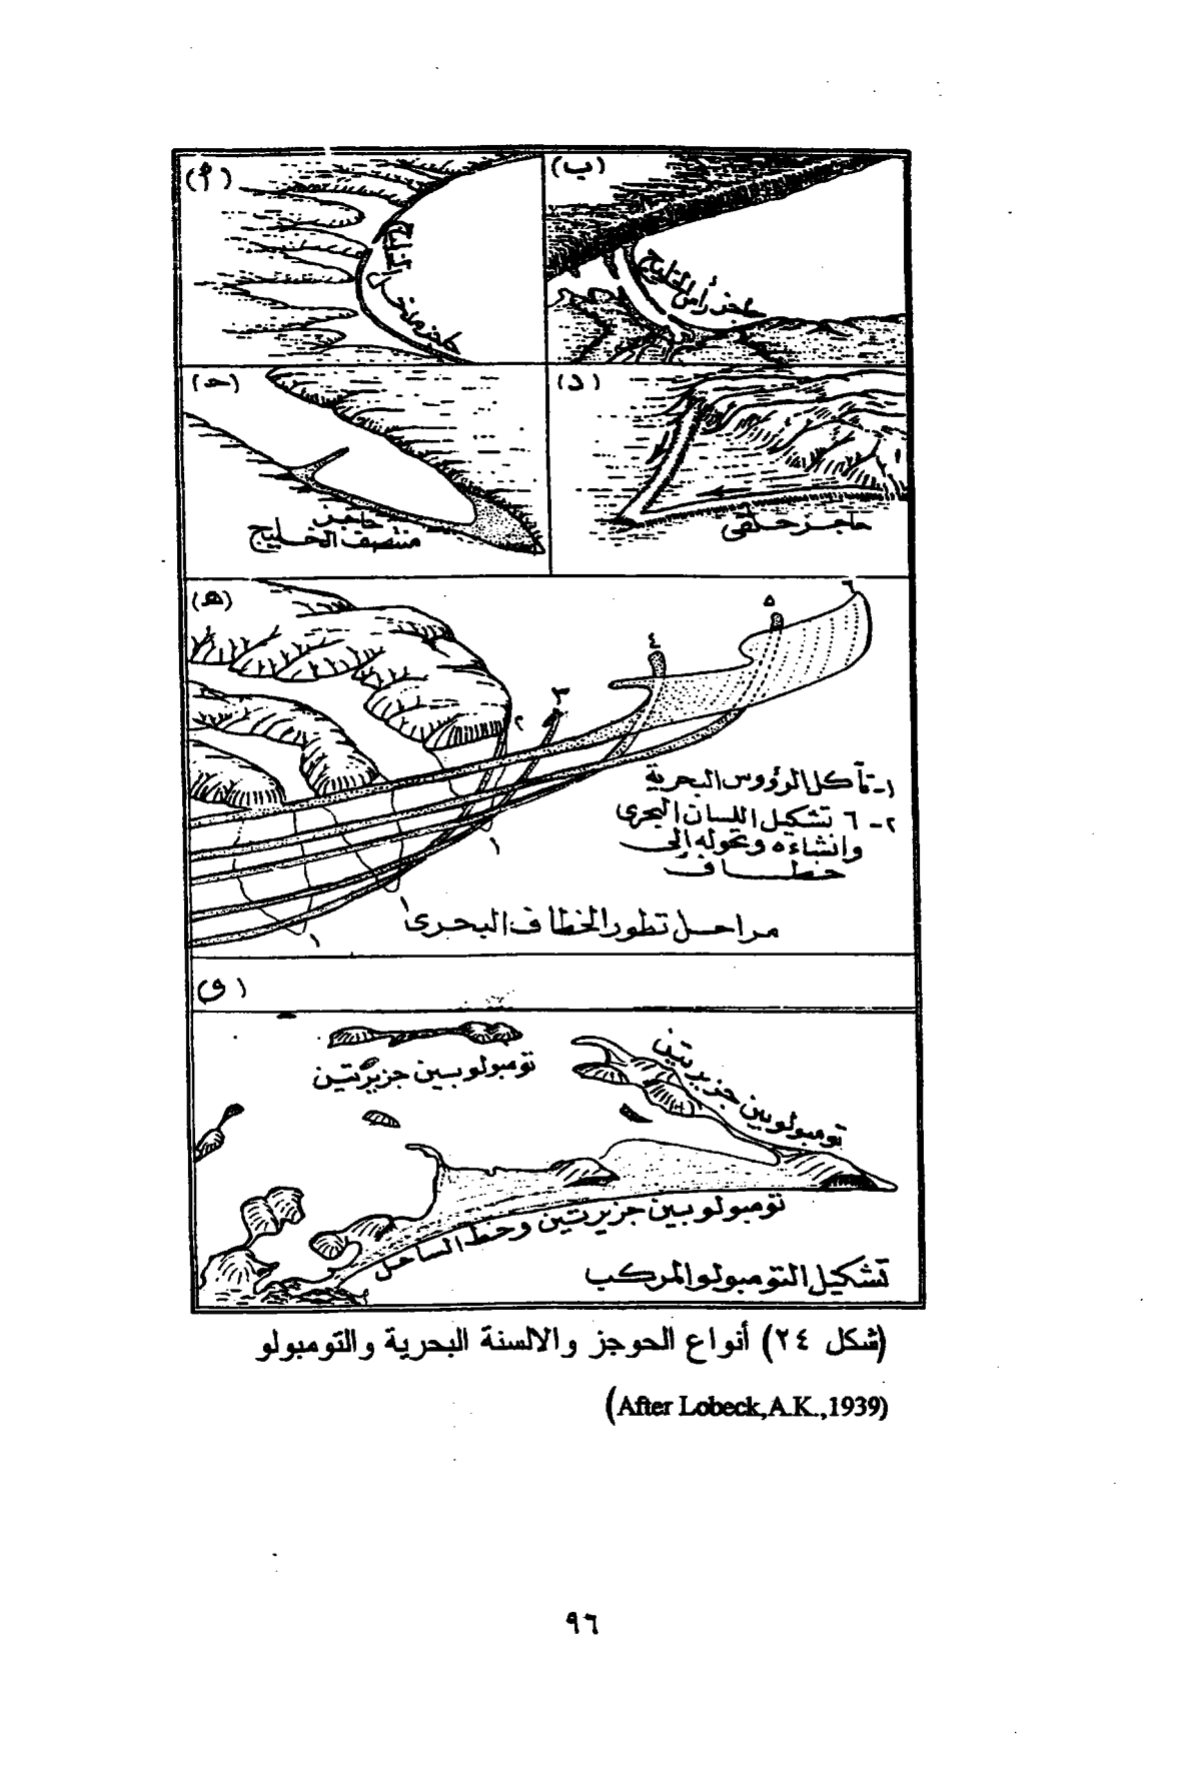 (أ)
حاجز مدخل الخليج
(ب)
حاجز رأس الخليج
(ح)
حاجز
منتصف الخليج
(د)
حاجز حلقى
(ه)
٦
٥
٤
٣
٢
١
١
١
١- تآكل الرؤوس البحرية
٢- ٦ تشكيل اللسان البحرى
وانشاءه وتحوله إلى
خطاف
مراحل تطور الخطاف البحرى
(و)
تومبولو بين جزيرتين
تومبولو بين جزيرتين
تومبولو بين جزيرتين وخط الساحل
تشكيل التومبولو المركب
(شكل ٢٤) أنواع الحوجز والالسنة البحرية والتومبولو
(After Lobeck,A.K.,1939)
٩٦